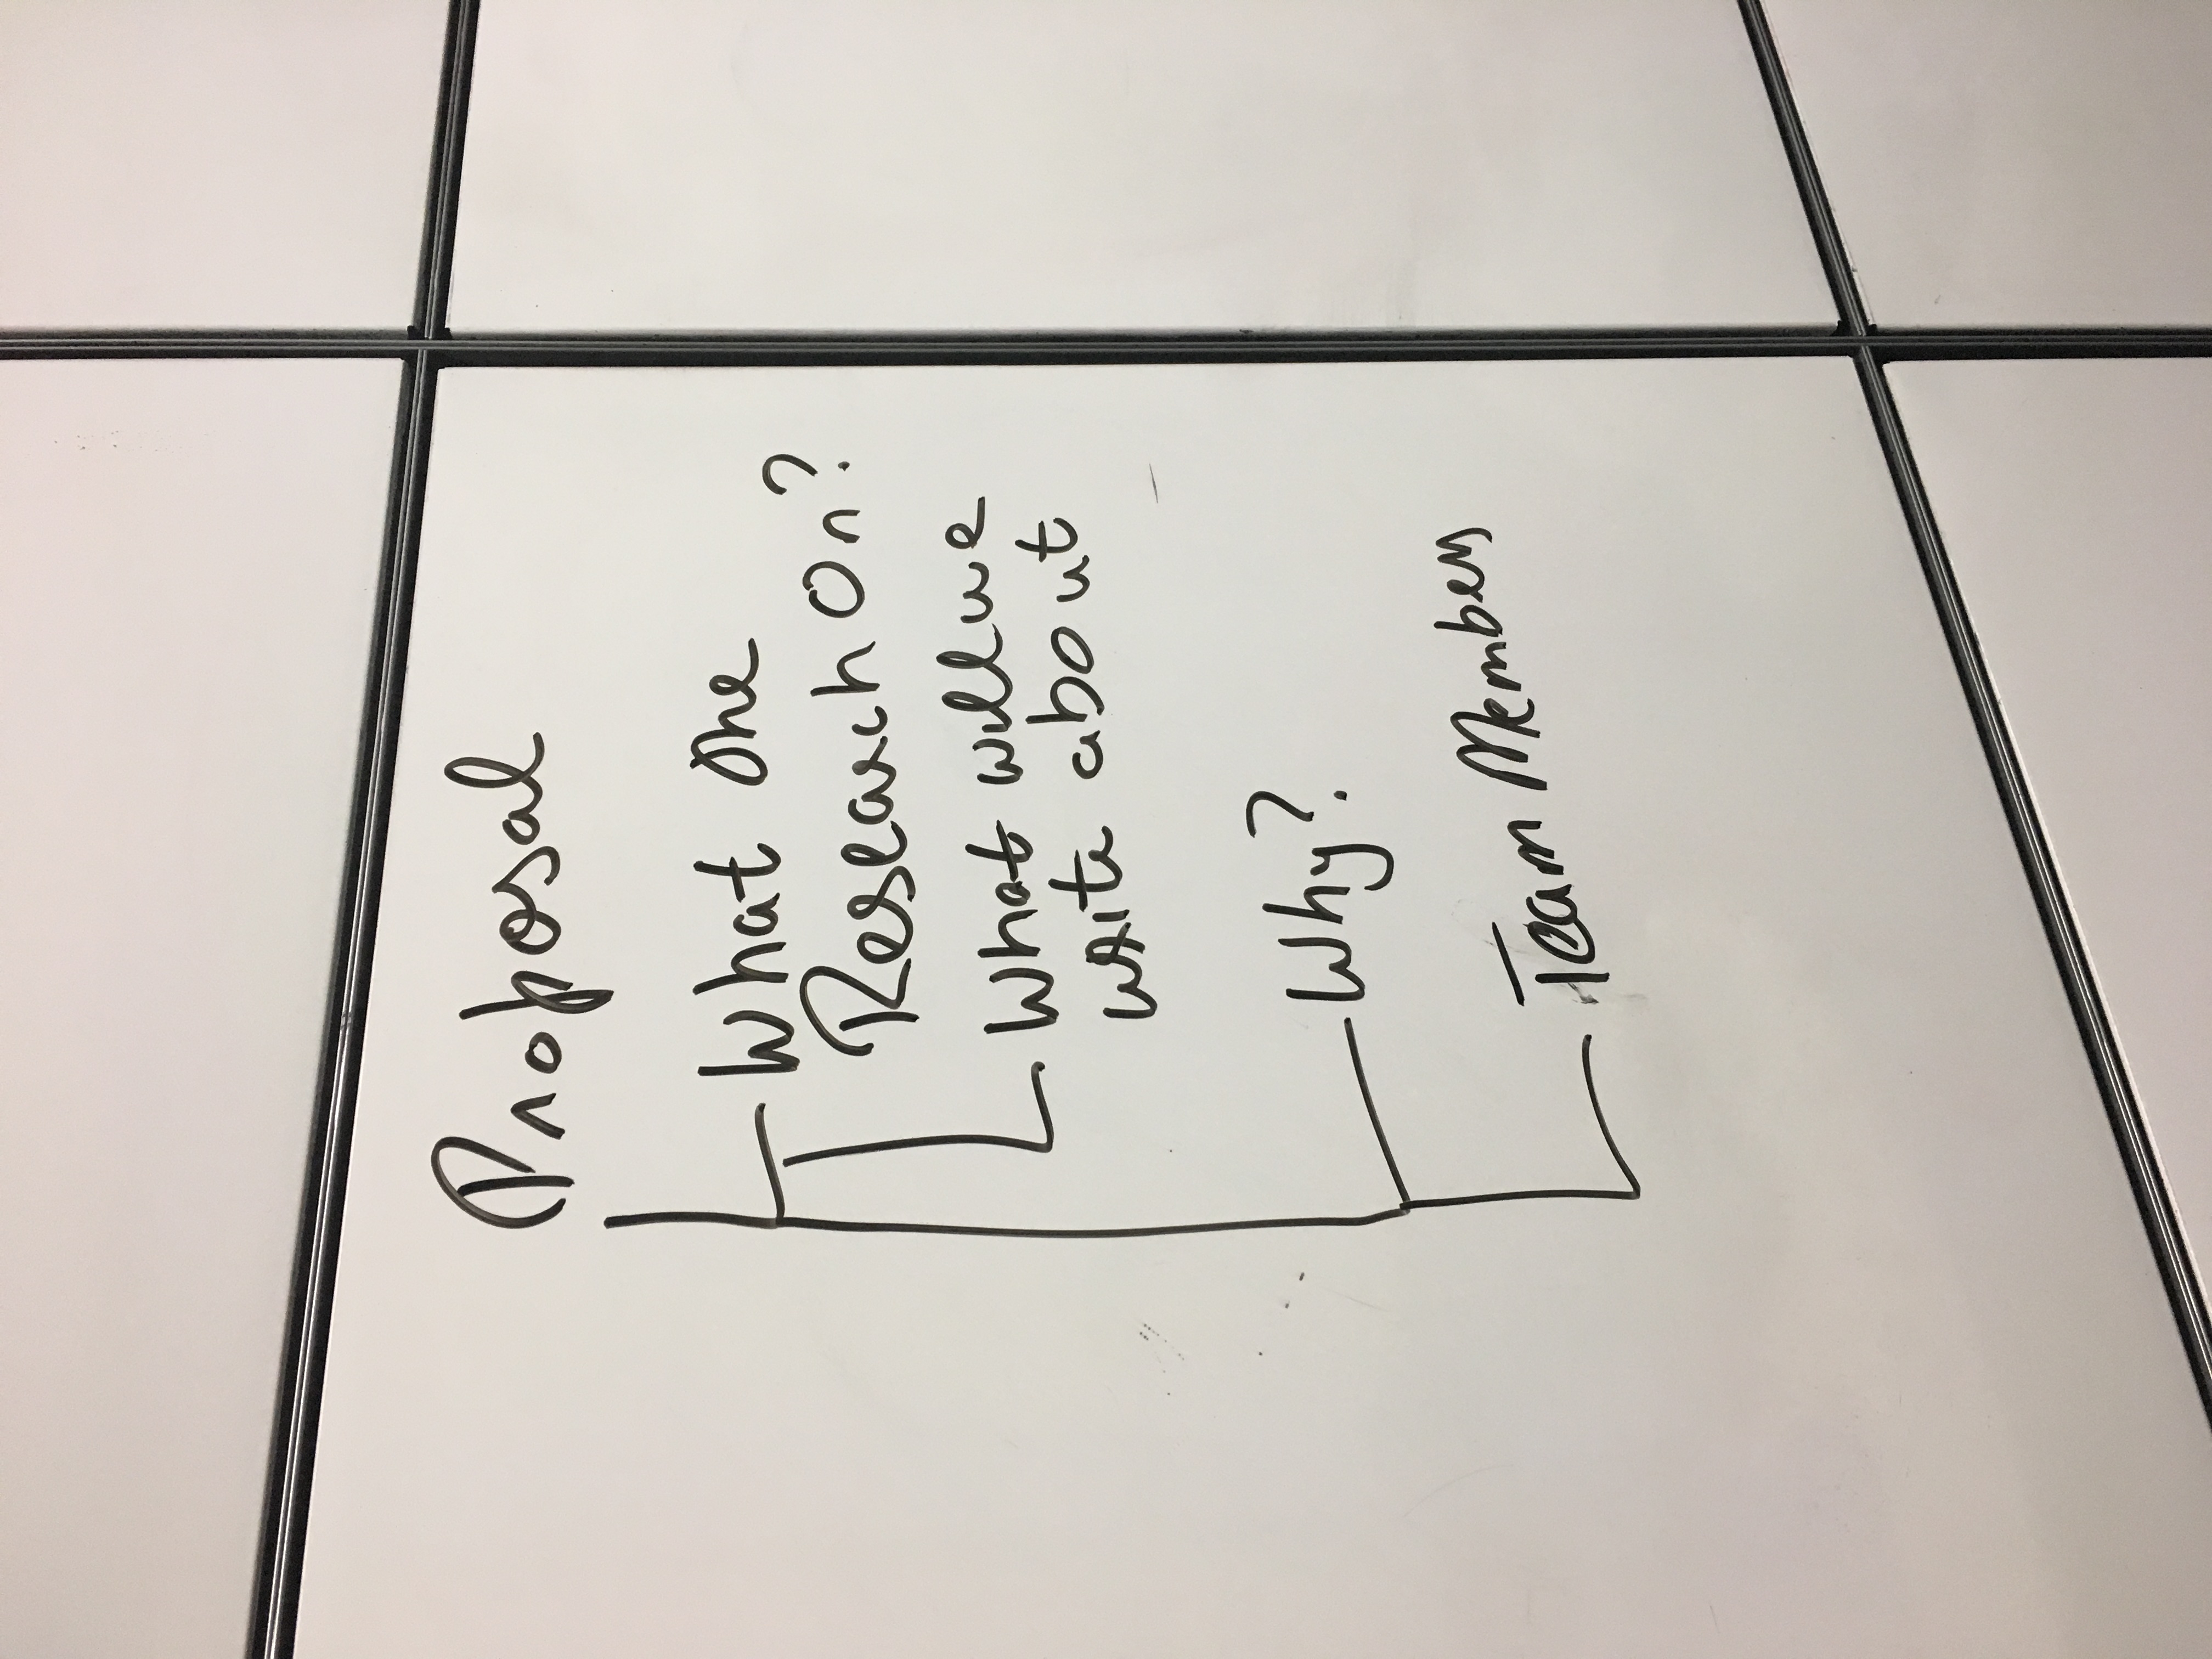 Proposal
What one
Research On?
What will we
write about
Why?
Team Members